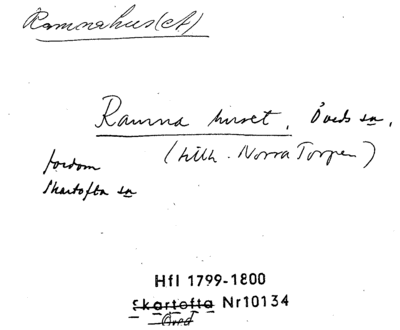 Ramnahus(et)
Ramna huset, Öveds sn,
(tillh. Norra Torpen)
fordom
Skartofta sn
Hfl 1799-1800
Skartofta Nr10134
Öved